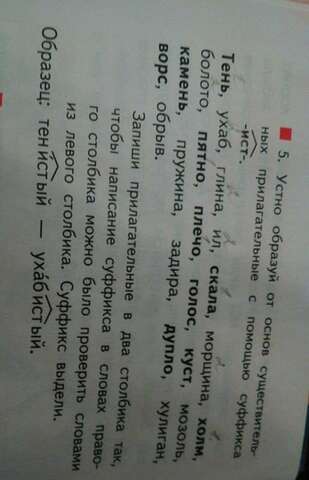 5. Устно образуй от основ существитель-
ных прилагательные с помощью суффикса
-ист-.
Тень, ухаб, глина, ил, скала, морщина, холм,
болото, пятно, плечо, голос, куст, мозоль,
камень, пружина, задира, дупло, хулиган,
ворс, обрыв.
Запиши прилагательные в два столбика так,
чтобы написание суффикса в словах право-
го столбика можно было проверить словами
из левого столбика. Суффикс выдели.
Образец: тенистый — уха́бистый.